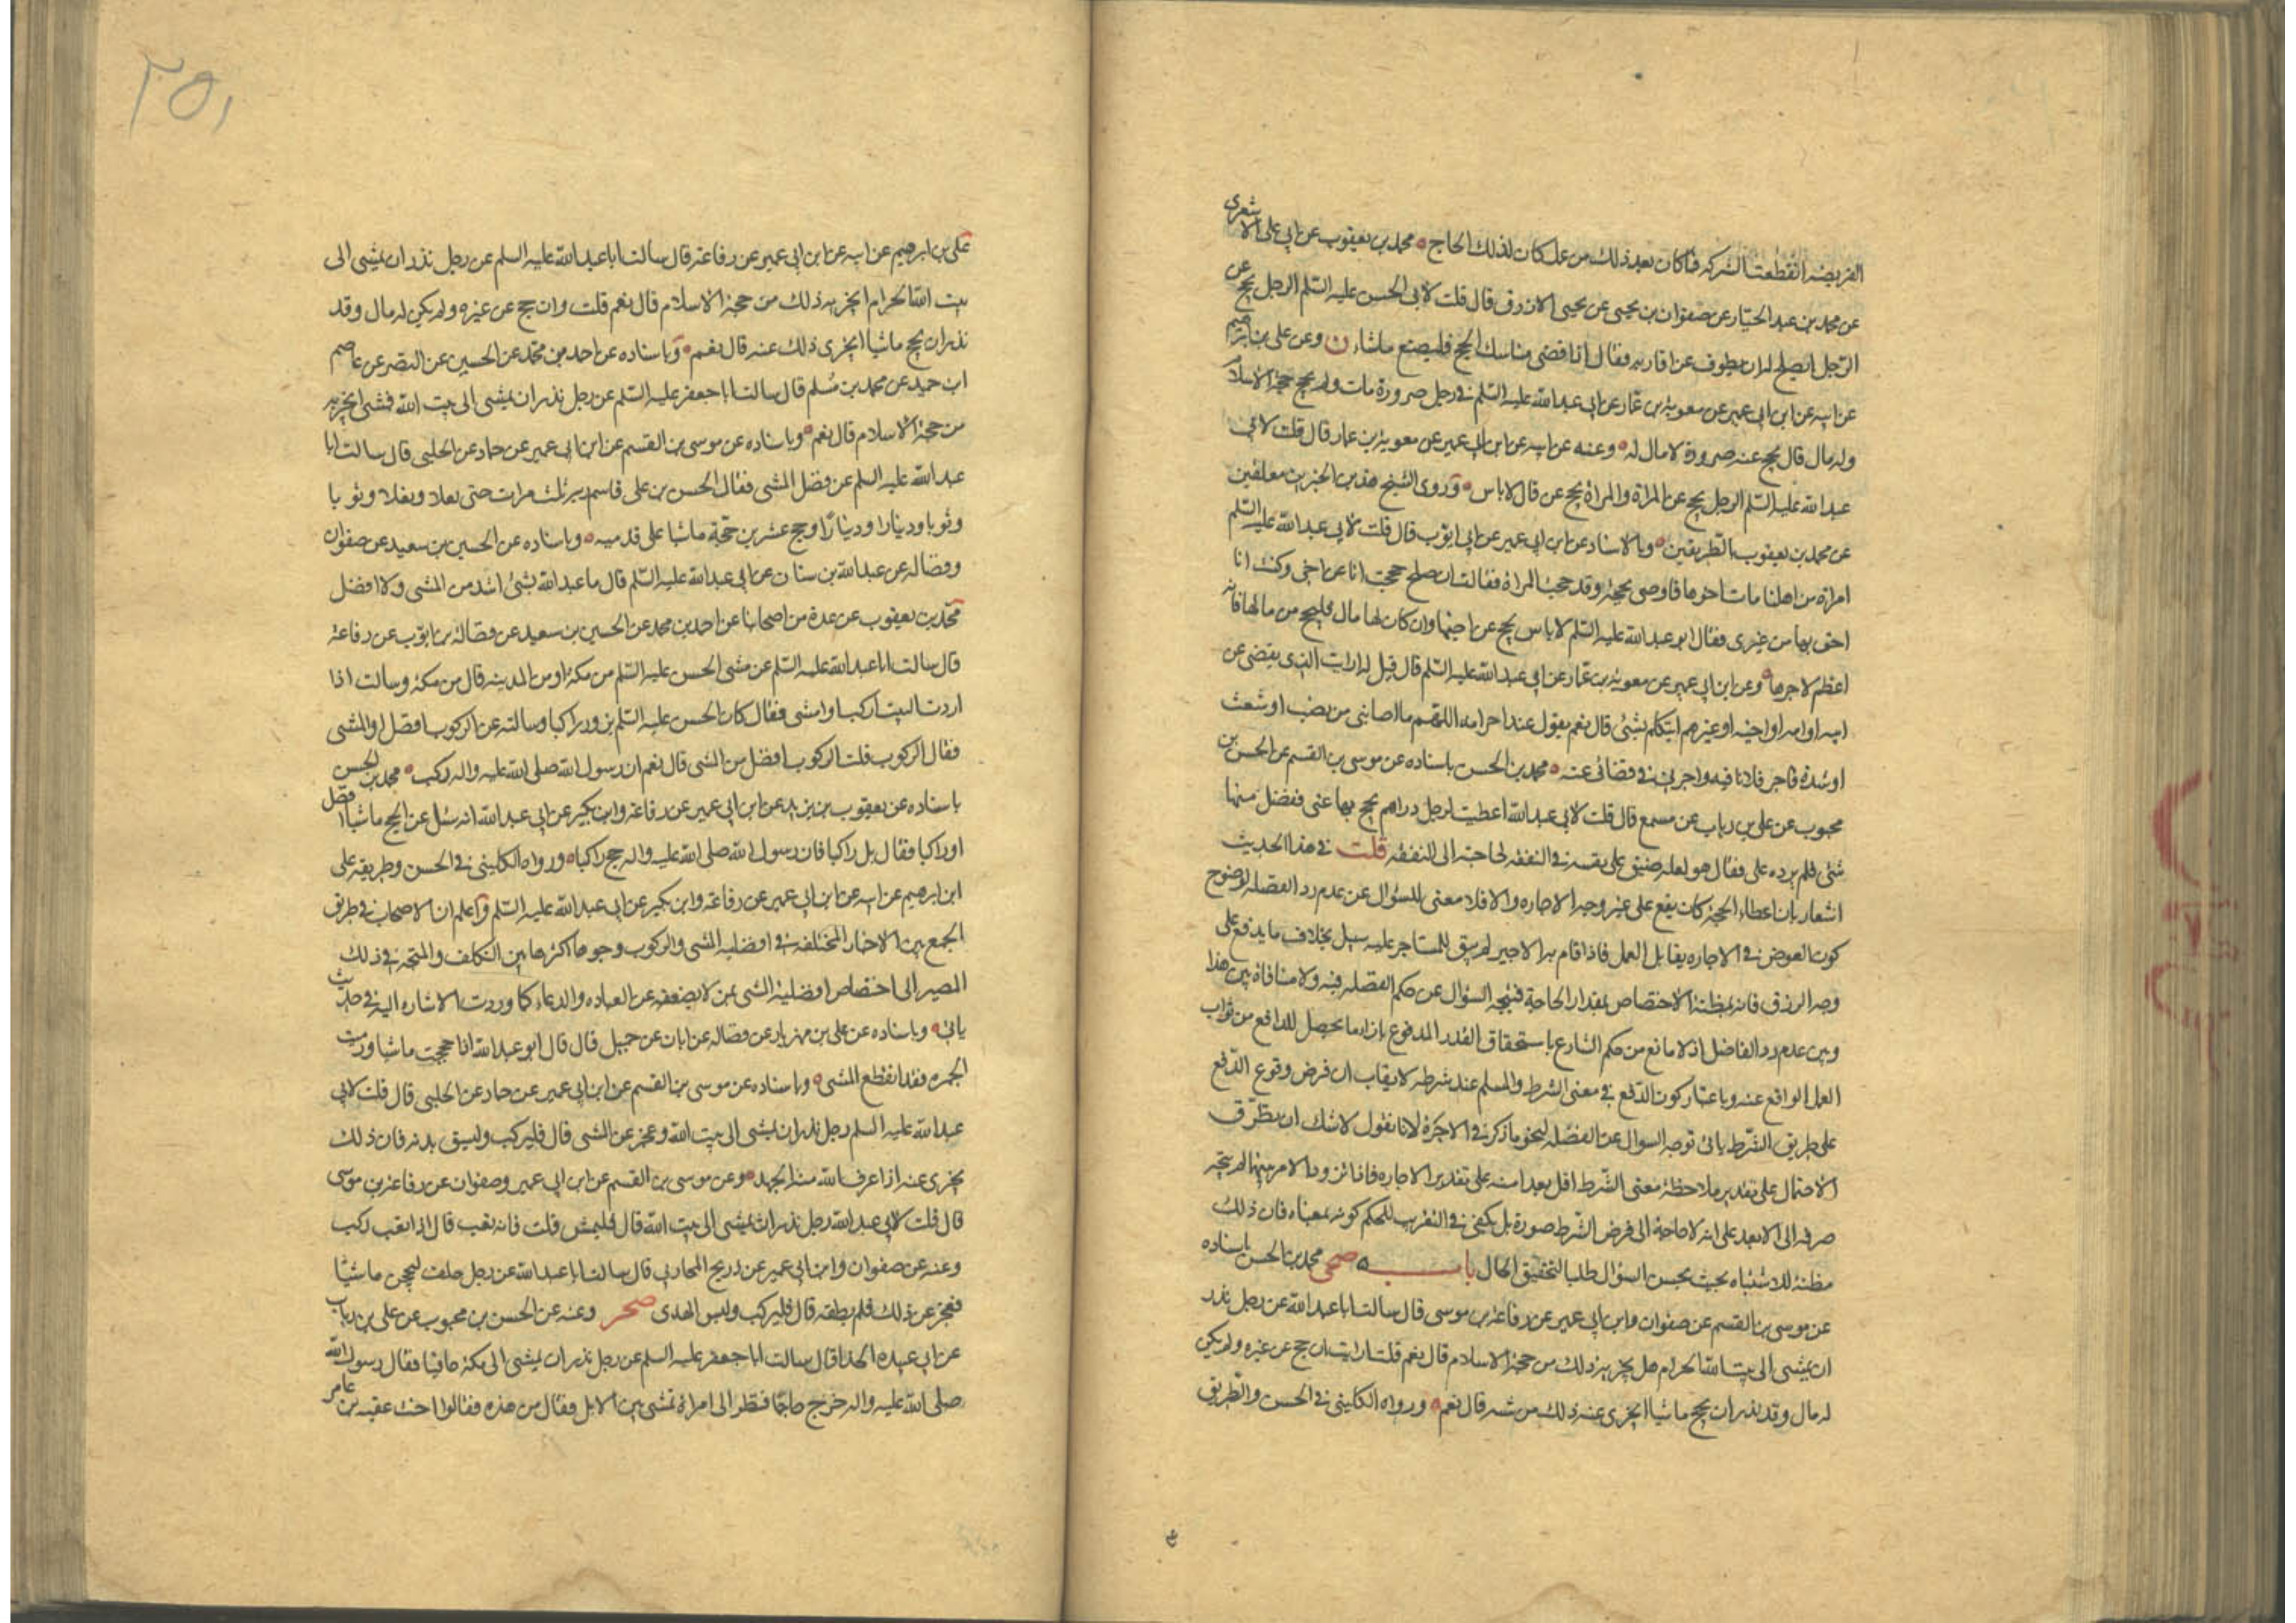 الفريضه انقطعت الشركه فما كان بعد ذلك من عمل كان لذلك الحاج ه محمد بن يعقوب عن ابى على الاشعرى
عن محمد بن عبد الجبار عن صفوان بن يحيى عن يحيى الازرق قال قلت لابى الحسن عليه السلم الرجل يحج عن
الرجل ايصلح له ان يطوف عن اقاربه فقال اذا قضى مناسك الحج فليصنع ماشاء ن وعن على بن ابرهيم
عن ابيه عن ابن ابى عمير عن معوية بن عمار عن ابى عبد الله عليه السلم فى رجل صرورة مات ولم يحج حجة الاسلام
وله مال قال يحج عنه صرورة لا مال له ه وعنه عن ابيه عن ابن ابى عمير عن معوية بن عمار قال قلت لابى
عبد الله عليه السلم الرجل يحج عن المراة والمراة يحج عن قال لا باس ه وروى الشيخ هذين الخبرين معلقين
عن محمد بن يعقوب بالطريقين ه وبالاسناد عن ابن ابى عمير عن ابى ايوب قال قلت لابى عبد الله عليه السلم
امراة من اهلنا مات اخوها فاوصى بحجة وقد حجت المراة فقالت ان صلح حججت انا عن اخى وكنت انا
احق بها من غيرى فقال ابو عبد الله عليه السلم لا باس يحج عن اخيها وان كان لها مال فليحج من مالها فانه
اعظم لاجرها ه وعن ابن ابى عمير عن معوية بن عمار عن ابى عبد الله عليه السلم قال قيل له ارايت الذى يقضى عن
ابيه او امه او اخيه او غيرهم ايتكلم بشئ قال نعم يقول عند احرامه اللهم ما اصابنى من نصب او شعث
او شدة فاجر فلانا فيه واجرنى فى قضائى عنه ه محمد بن الحسن باسناده عن موسى بن القسم عن الحسن بن
محبوب عن على بن رياب عن مسمع قال قلت لابى عبد الله اعطيت لرجل دراهم يحج بها عنى ففضل منها
شئ فلم يرده على فقال هو له لعله ضيق على نفسه فى النفقه لحاجته الى النفقه قلت فى هذا الحديث
اشعار بان اعطاء الحجة كان يقع على غير وجه الاجاره والا فلا معنى للسؤال عن عدم رد الفضله لوضوح
كون العوض فى الاجاره يقابل العمل فاذا قام به الاجير لم يبق للمستاجر عليه سبيل بخلاف ما يدفع على
وجه الرزق فانه بمظنة الاختصاص بمقدار الحاجة فيتجه السؤال عن حكم الفضله فيه ولا منافاة بين هذا
وبين عدم رد الفاضل اذ لا مانع من حكم الشارع باستحقاق القدر المدفوع بازاء ما يحصل للدافع من ثواب
العمل الواقع عنه وباعتبار كون الدفع فى معنى الشرط والمسلم عند شرطه لا يقاب ان فرض وقوع الدفع
على طريق الشرط ياتى توجه السوال عن الفضله لنحو ما ذكر فى الاجرة لانا نقول لا شك ان تطرق
الاحتمال على تقدير ملاحظة معنى الشرط اقل بعدا منه على تقدير الاجاره فاذا تردد الامر بينهما لم يتجه
صرفه الى الابعد على انه لا حاجة الى فرض الشرط صورة بل يكفى فى التقريب للحكم كونه بمعناه فان ذلك
مظنة للاشتباه بحيث يحسن السؤال طلبا لتحقيق الحال باب ه صحى محمد بن الحسن باسناده
عن موسى بن القسم عن صفوان وابن ابى عمير عن رفاعة بن موسى قال سالت ابا عبد الله عن رجل نذر
ان يمشى الى بيت الله الحرام هل يجزيه ذلك من حجة الاسلام قال نعم قلت ارايت ان حج عن غيره ولم يكن
له مال وقد نذر ان يحج ماشيا ايجزى عنه ذلك من مشيه قال نعم ه ورواه الكلينى فى الحسن والطريق
٢٥١
على بن ابرهيم عن ابيه عن ابن ابى عمير عن رفاعة قال سالت ابا عبد الله عليه السلم عن رجل نذر ان يمشى الى
بيت الله الحرام ايجزيه ذلك من حجة الاسلام قال نعم قلت وان حج عن غيره ولم يكن له مال وقد
نذر ان يحج ماشيا ايجزى ذلك عنه قال نعم ه وباسناده عن احمد بن محمد عن الحسين عن النضر عن عاصم
ابن حميد عن محمد بن مسلم قال سالت ابا جعفر عليه السلم عن رجل نذر ان يمشى الى بيت الله فمشى ايجزيه
من حجة الاسلام قال نعم ه وباسناده عن موسى بن القسم عن ابن ابى عمير عن حماد عن الحلبى قال سالت ابا
عبد الله عليه السلم عن فضل المشى فقال الحسن بن على قاسم ربه ثلث مرات حتى نعلا ونعلا وثوبا
وثوبا ودينارا ودينارا وحج عشرين حجة ماشيا على قدميه ه وباسناده عن الحسين بن سعيد عن صفوان
وفضاله عن عبد الله بن سنان عن ابى عبد الله عليه السلم قال ما عبد الله بشئ اشد من المشى ولا افضل
محمد بن يعقوب عن عدة من اصحابنا عن احمد بن محمد عن الحسين بن سعيد عن فضالة بن ايوب عن رفاعة
قال سالت ابا عبد الله عليه السلم عن مشى الحسن عليه السلم من مكة او من المدينه قال من مكة وسالت اذا
اردت البيت اركب او امشى فقال كان الحسن عليه السلم يزور راكبا وسالته عن الركوب افضل او المشى
فقال الركوب قلت الركوب افضل من المشى قال نعم ان رسول الله صلى الله عليه واله ركب ه محمد بن الحسن
باسناده عن يعقوب بن يزيد عن ابن ابى عمير عن رفاعة وابن بكير عن ابى عبد الله انه سئل عن الحج ماشيا افضل
او راكبا فقال بل راكبا فان رسول الله صلى الله عليه واله حج راكبا ه ورواه الكلينى فى الحسن وطريقه على
ابن ابرهيم عن ابيه عن ابن ابى عمير عن رفاعة وابن بكير عن ابى عبد الله عليه السلم واعلم ان الاصحاب فى طريق
الجمع بين الاخبار المختلفه فى افضليه المشى والركوب وجوها اكثرها بين التكلف والمتجه فى ذلك
المصير الى اختصاص افضلية المشى بمن لا يضعفه عن العباده والدعاء كما وردت الاشاره اليه فى حديث
ياتى ه وباسناده عن على بن مهزيار عن فضاله عن ابان عن جميل قال قال ابو عبد الله اذا حججت ماشيا ورميت
الجمره فقد انقطع المشى ه وباسناده عن موسى بن القسم عن ابن ابى عمير عن حماد عن الحلبى قال قلت لابى
عبد الله عليه السلم رجل نذر ان يمشى الى بيت الله وعجز عن المشى قال فليركب وليسق بدنه فان ذلك
يجزى عنه اذا عرف الله منه الجهد ه وعن موسى بن القسم عن ابن ابى عمير وصفوان عن رفاعة بن موسى
قال قلت لابى عبد الله رجل نذر ان يمشى الى بيت الله قال فليمش قلت فانه تعب قال اذا تعب ركب
وعنه عن صفوان وابن ابى عمير عن ذريح المحاربى قال سالت ابا عبد الله عن رجل حلف ليحجن ماشيا
فعجز عن ذلك فلم يطقه قال فليركب وليس الهدى صحر وعنه عن الحسن بن محبوب عن على بن رياب
عن ابى عبيده الحذا قال سالت ابا جعفر عليه السلم عن رجل نذر ان يمشى الى مكة حافيا فقال رسول الله
صلى الله عليه واله خرج حاجا فنظر الى امراة تمشى بين الابل فقال من هذه فقالوا اخت عقبه بن عامر